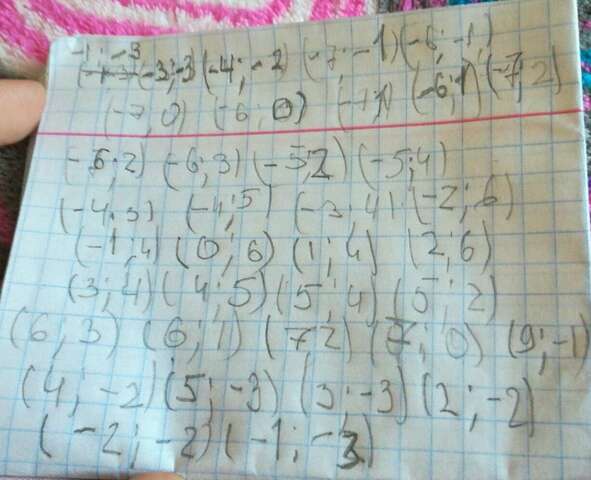 -1; -3
(-3;-3) (-4; -2) (-7; -1) (-6; -1)
(-7; 0) (-6; 0) (-7;1) (-6;1) (-7; 2)
(-6;2) (-6;3) (-5;2) (-5;4)
(-4;3) (-4;5) (-3;4) (-2;6)
(-1;4) (0;6) (1;4) (2;6)
(3;4) (4;5) (5;4) (5;2)
(6;3) (6;1) (7 2) (7;0) (9;-1)
(4; -2) (5; -3) (3;-3) (2;-2)
(-2;-2) (-1;-3)